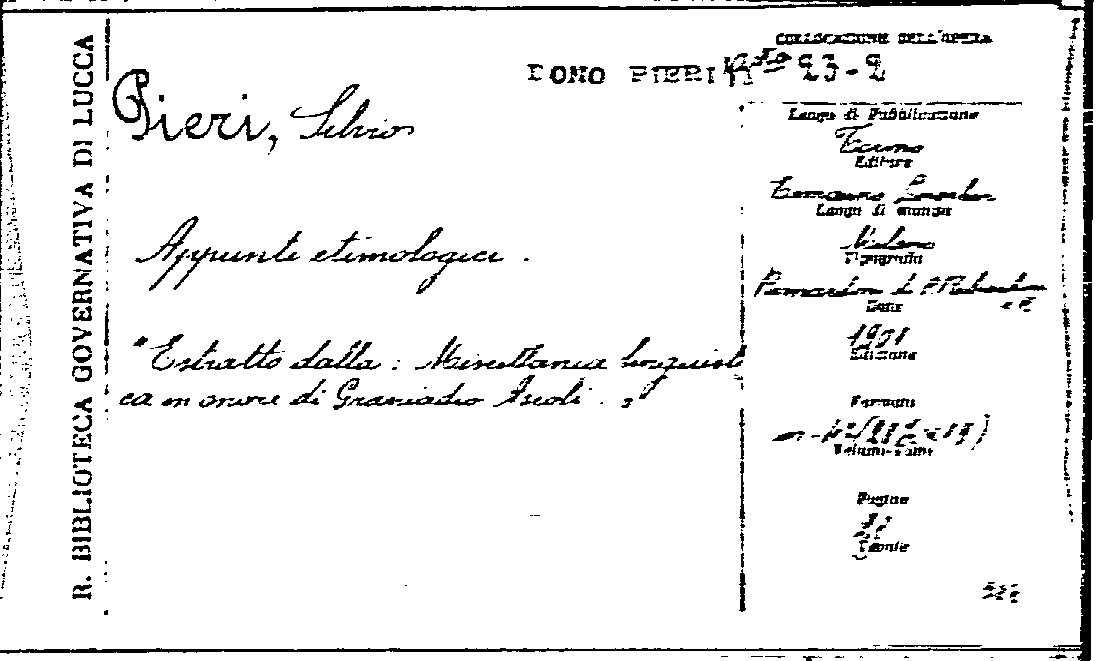 R. BIBLIOTECA GOVERNATIVA DI LUCCA
COLLOCAZIONE DELL'OPERA
DONO PIERI 23-2
Pieri, Silvio
Appunti etimologici.
"Estratto dalla: Miscellanea linguisti
ca in onore di Graziadio Ascoli."
Luogo di Pubblicazione
Torino
Editore
Ermanno Loescher
Luogo di stampa
Milano
Tipografia
Bernardoni di C. Rebeschini
e C.
Data
1901
Edizione
Formato
Volumi-Tomi
Pagine
Tavole